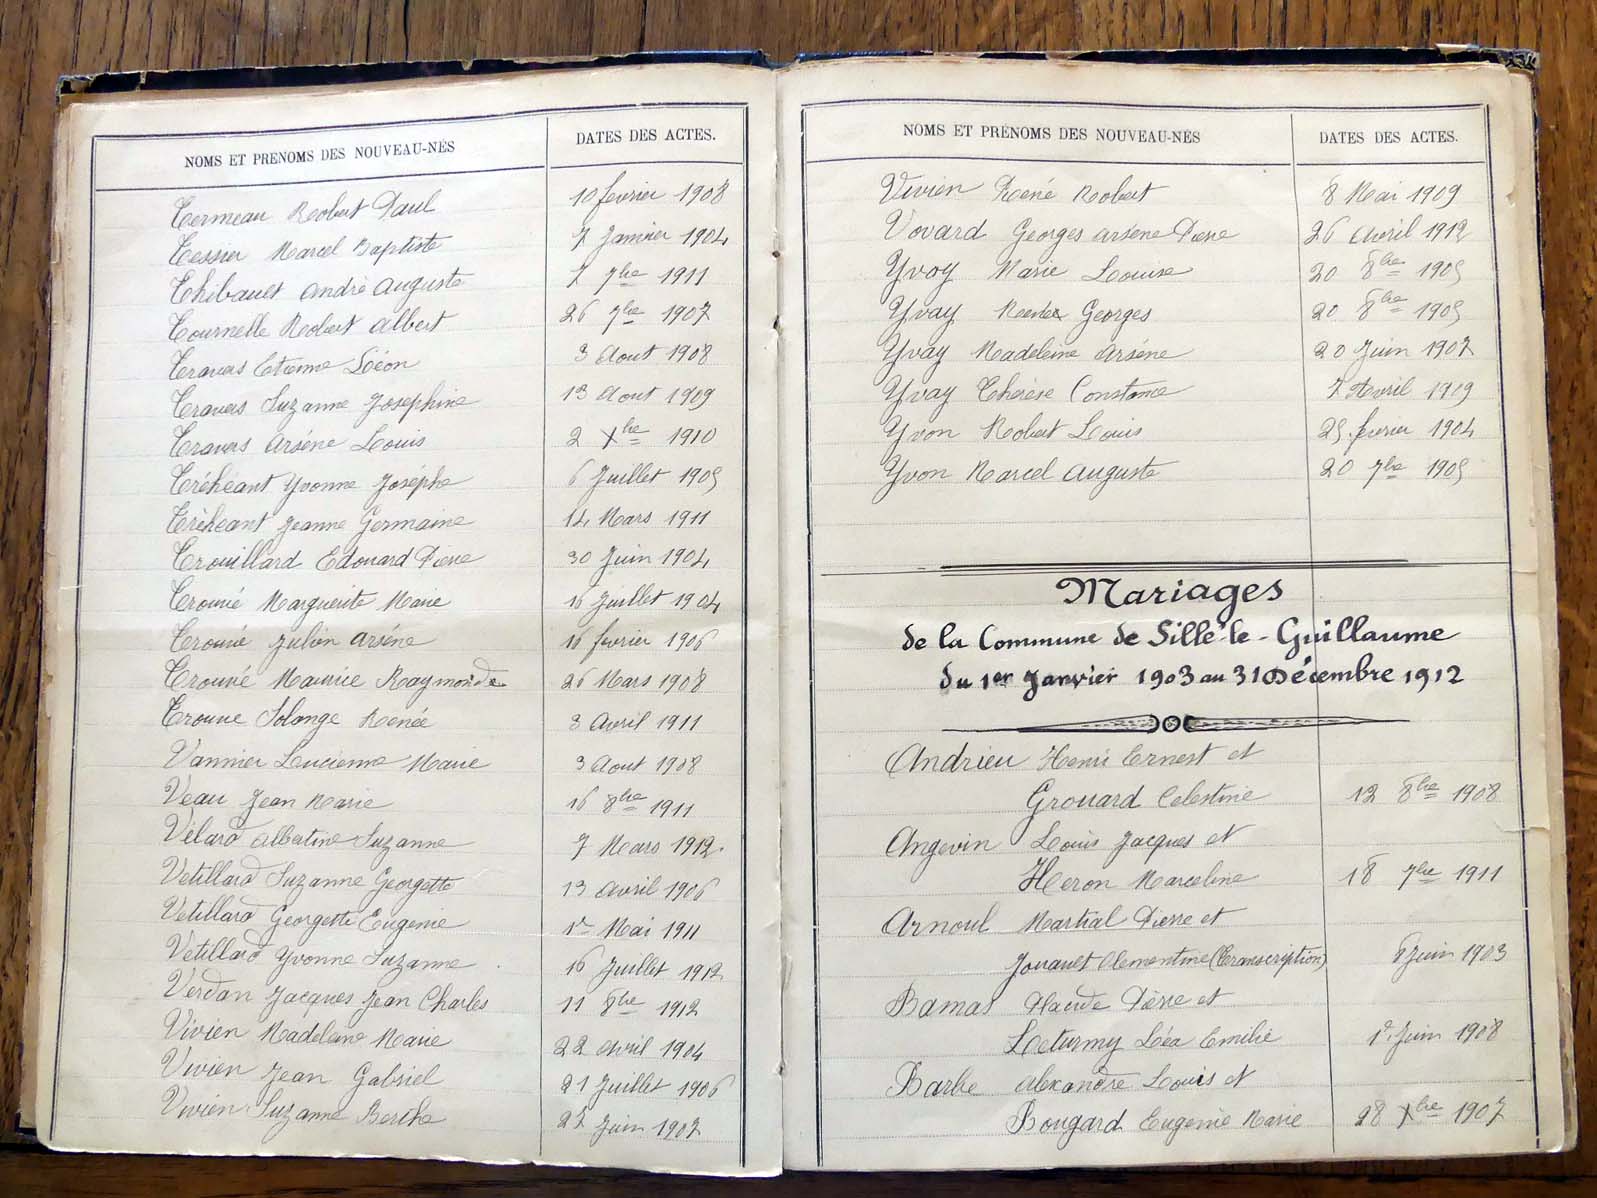 NOMS ET PRÉNOMS DES NOUVEAU-NÉS DATES DES ACTES.
Termeau Robert Paul 10 février 1908
Tessier Marcel Baptiste 7 Janvier 1904
Thibault André Auguste 7 7bre 1911
Tournelle Robert Albert 26 7bre 1907
Travers Etienne Léon 3 Aout 1908
Travers Suzanne Joséphine 13 Aout 1909
Travers Arsène Louis 2 Xbre 1910
Tréhéant Yvonne Josèphe 6 Juillet 1905
Tréhéant Jeanne Germaine 14 Mars 1911
Trouillard Edouard Pierre 30 Juin 1904
Trouvé Marguerite Marie 16 Juillet 1904
Trouvé Julien Arsène 16 février 1906
Trouvé Maurice Raymonde 26 Mars 1908
Trouvé Solange Renée 3 Avril 1911
Vannier Lucienne Marie 3 Aout 1908
Veau Jean Marie 16 8bre 1911
Vélard Albertine Suzanne 7 Mars 1912.
Vetillard Suzanne Georgette 13 Avril 1906
Vetillard Georgette Eugénie 1er Mai 1911
Vetillard Yvonne Suzanne 16 Juillet 1912
Verdan Jacques Jean Charles 11 8bre 1912
Vivien Madeleine Marie 22 Avril 1904
Vivien Jean Gabriel 21 Juillet 1906
Vivien Suzanne Berthe 27 Juin 1907
NOMS ET PRÉNOMS DES NOUVEAU-NÉS DATES DES ACTES.
Vivien René Robert 8 Mai 1909
Vovard Georges Arsène Pierre 26 Avril 1912
Yvay Marie Louise 20 8bre 1905
Yvay Georges 20 8bre 1905
Yvay Madeleine Arsène 20 Juin 1907
Yvay Thérèse Constance 7 Avril 1909
Yvon Robert Louis 25 février 1904
Yvon Marcel Auguste 20 7bre 1905
Mariages
de la Commune de Sillé-le-Guillaume
du 1er Janvier 1903 au 31 Décembre 1912
Andrieu Henri Ernest et
Grouard Celestine 12 8bre 1908
Angevin Louis Jacques et
Heron Marceline 18 7bre 1911
Arnoul Martial Pierre et
Jouanet Clementine (Transcription) 8 Juin 1903
Bamas Claude Pierre et
Leturmy Léa Emilie 1er Juin 1908
Barbe Alexandre Louis et
Bougard Eugenie Marie 28 Xbre 1907